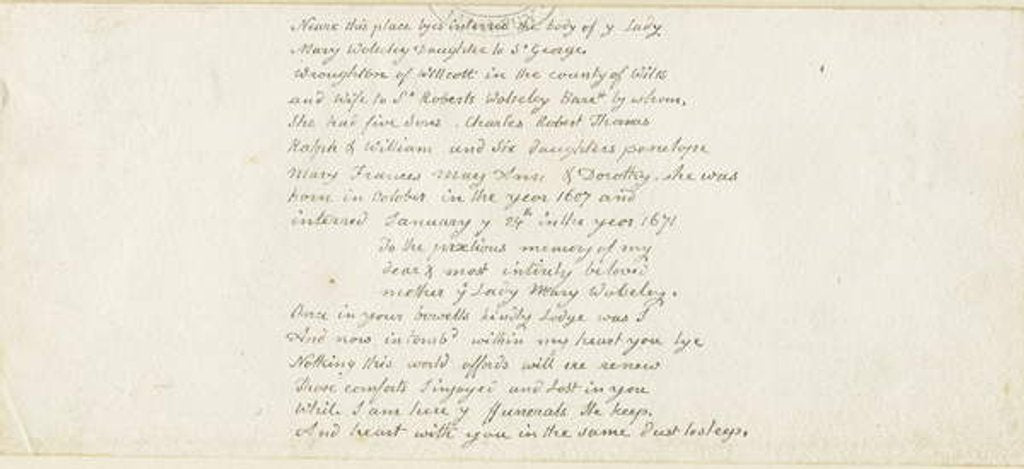 Neare this place lyes interred the body of y Lady
Mary Wolseley Daughter to Sr George
Wroughton of Willcott in the county of Wilts
and Wife to Sr Roberts Wolseley Baret by whom,
She had five Sons. Charles Robert Thomas
Ralph & William and Six daughters penelope
Mary Frances Mary Anne & Dorothy. She was
born in October in the year 1607 and
interred January y 24th in the year 1671
To the pretious memory of my
dear & most intirely beloved
mother ye Lady Mary Wolseley.
Once in your bowells kindly Lodge was I
And now intomb'd within my heart you lye
Nothing this world affords will ere renew
Those comforts I injoyed and Lost in you
While I am here y ffunerals Ile keep.
And heart with you in the same Dust to sleep.